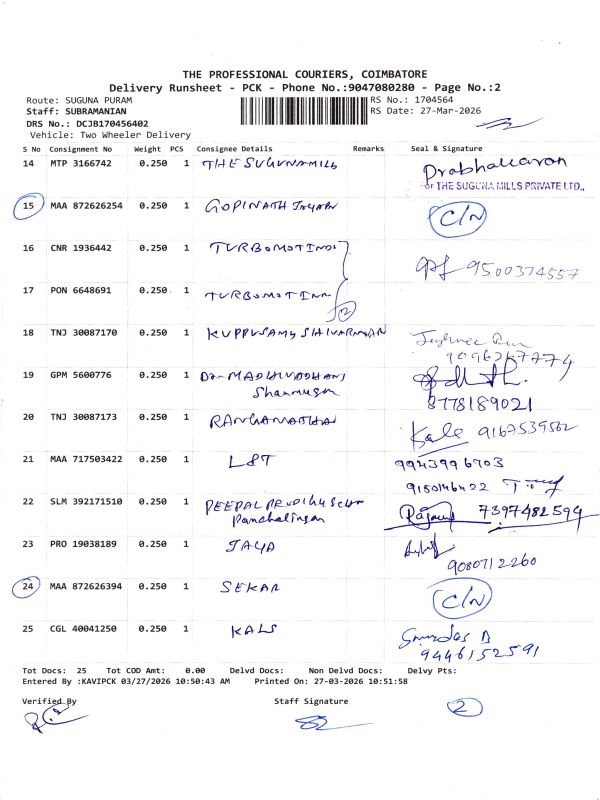 THE PROFESSIONAL COURIERS, COIMBATORE
Delivery Runsheet - PCK - Phone No.:9047080280 - Page No.:2
Route: SUGUNA PURAM RS No.: 1704564
Staff: SUBRAMANIAN RS Date: 27-Mar-2026
DRS No.: DCJB170456402
Vehicle: Two Wheeler Delivery
S No Consignment No Weight PCS Consignee Details Remarks Seal & Signature
14 MTP 3166742 0.250 1 THE SUGUNAMILLS Prabhakaran
For THE SUGUNA MILLS PRIVATE LTD.,
15 MAA 872626254 0.250 1 GOPINATH C/N
16 CNR 1936442 0.250 1 TURBOMOTINDI
9500374557
17 PON 6648691 0.250 1 TURBOMOT
2
18 TNJ 30087170 0.250 1 KUPPUSAMY
19 GPM 5600776 0.250 1
8778189021
20 TNJ 30087173 0.250 1 RANGANATHAN Kale
21 MAA 717503422 0.250 1 L&T 9943996703
22 SLM 392171510 0.250 1 PEEPAL 7397482594
23 PRO 19038189 0.250 1 JAYA
9080712260
24 MAA 872626394 0.250 1 SEKAR C/N
25 CGL 40041250 0.250 1 KALS
9446152591
Tot Docs: 25 Tot COD Amt: 0.00 Delvd Docs: Non Delvd Docs: Delvy Pts:
Entered By :KAVIPCK 03/27/2026 10:50:43 AM Printed On: 27-03-2026 10:51:58
Verified By Staff Signature 2